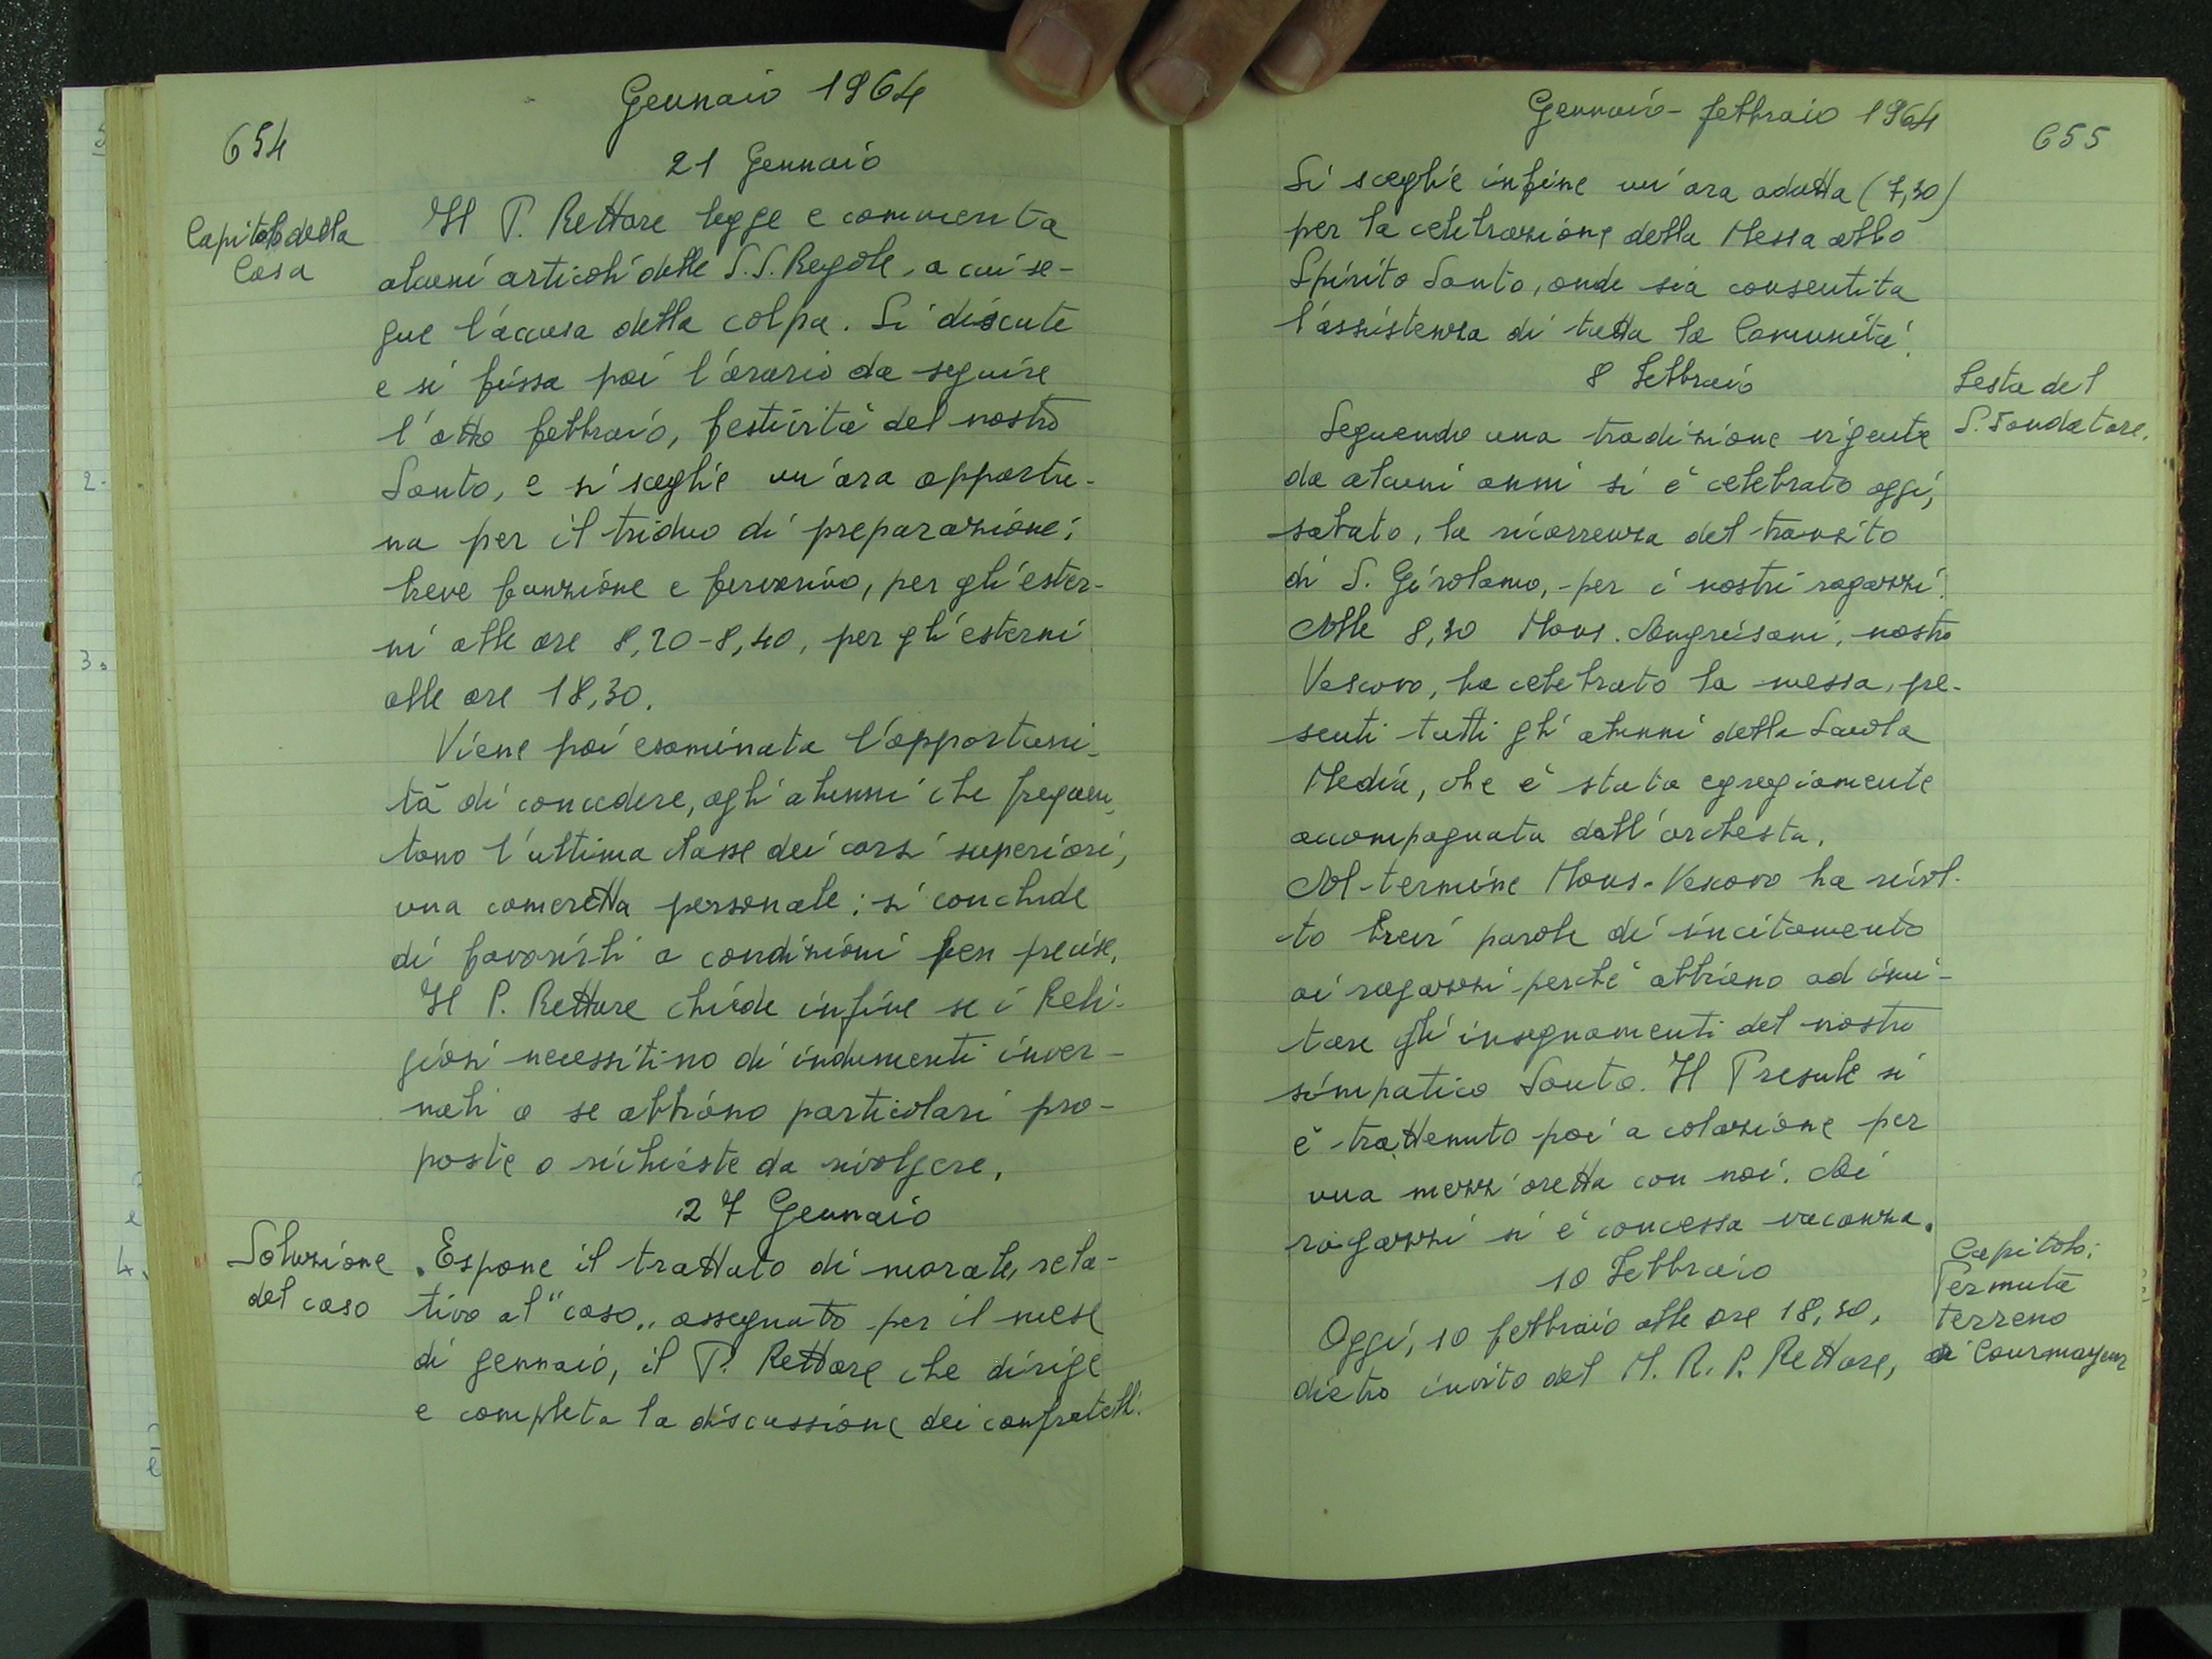 Gennaio 1964
654
21 Gennaio
Capitolo della
Casa
Il P. Rettore legge e commenta
alcuni articoli delle S.S. Regole, a cui se-
gue l'accusa della colpa. Si discute
e si fissa poi l'orario da seguire
l'otto febbraio, festività del nostro
Santo, e si sceglie un'ora opportu-
na per il triduo di preparazione:
breve funzione e fervorino, per gli ester-
ni alle ore 8,20-8,40, per gli esterni
alle ore 18,30.
Viene poi esaminata l'opportuni-
tà di concedere, agli alunni che frequen-
tano l'ultima classe dei corsi superiori,
una cameretta personale: si conclude
di favorirli a condizioni ben precise.
Il P. Rettore chiede infine se i Reli-
giosi necessitino di indumenti inver-
nali o se abbiano particolari pro-
poste o richieste da rivolgere.
27 Gennaio
Soluzione
del caso
Espone il trattato di morale, rela-
tivo al "caso" assegnato per il mese
di gennaio, il P. Rettore che dirige
e completa la discussione dei confratelli.
Gennaio-febbraio 1964
655
Si sceglie infine un'ora adatta (7,30)
per la celebrazione della Messa allo
Spirito Santo, onde sia consentita
l'assistenza di tutta la Comunità.
8 Febbraio
Festa del
S. Fondatore.
Seguendo una tradizione vigente
da alcuni anni si è celebrato oggi,
sabato, la ricorrenza del transito
di S. Girolamo, per i nostri ragazzi.
Alle 8,30 Mons. Angrisani, nostro
Vescovo, ha celebrato la messa, pre-
senti tutti gli alunni della Scuola
Media, che è stata egregiamente
accompagnata dall'orchesta.
Al termine Mons. Vescovo ha rivol-
to brevi parole di incitamento
ai ragazzi perchè abbiano ad imi-
tare gli insegnamenti del nostro
simpatico Santo. Il Presule si
è trattenuto poi a colazione per
una mezz'oretta con noi. Ai
ragazzi si è concessa vacanza.
10 Febbraio
Capitolo:
Permuta
terreno
di Courmayeur
Oggi, 10 febbraio alle ore 18,30,
dietro invito del M. R. P. Rettore,
2.
3.
4.